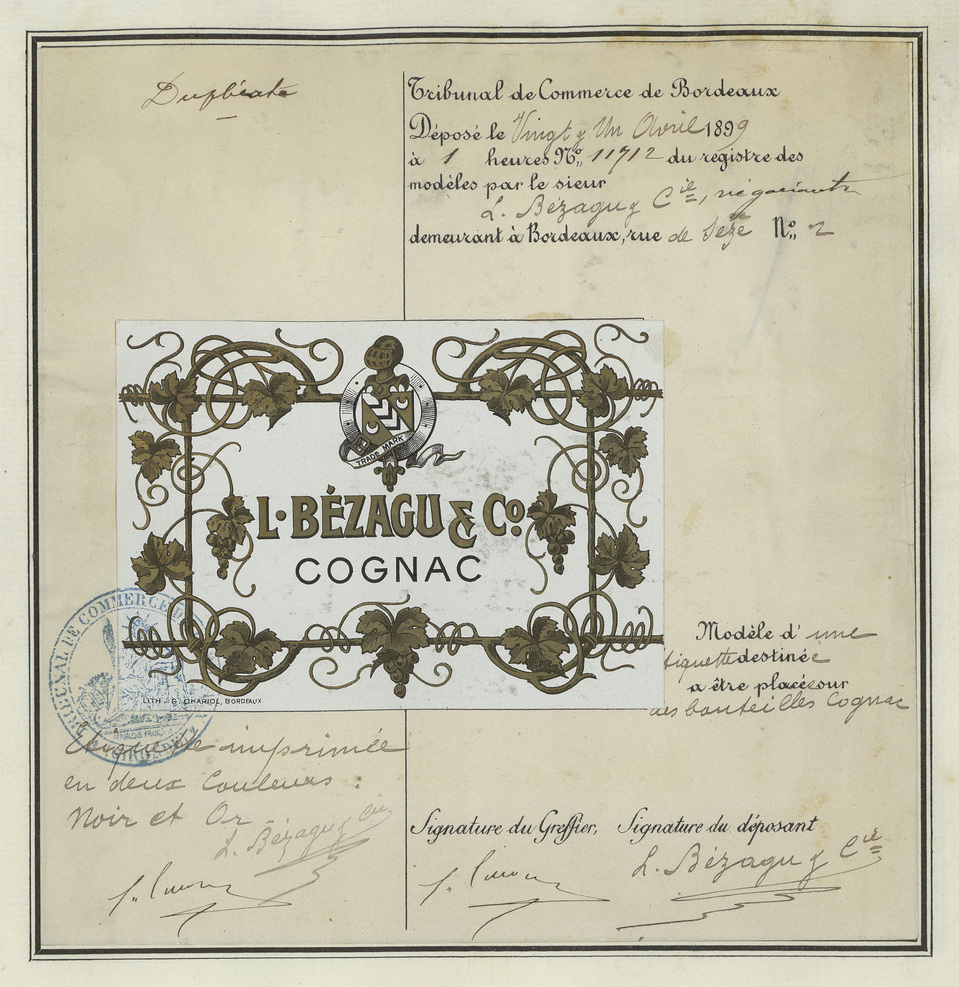 Duplicata
Tribunal de Commerce de Bordeaux
Déposé le Vingt & Un Avril 1899
à 1 heures No. 11712 du registre des
modèles par le sieur
L. Bézagu & Cie, négociants
demeurant à Bordeaux, rue de Sèze No. 2
TRADE MARK
L. BÉZAGU & Co
COGNAC
LITH. G. CHARIOL, BORDEAUX
TRIBUNAL DE COMMERCE DE
GIRONDE
Modèle d'une
tiquette destinée
a être placée sur
des bouteilles Cognac
Etiquette imprimée
en deux Couleurs :
Noir et Or
L. Bézagu & Cie
Signature du Greffier, Signature du déposant
L. Bézagu & Cie